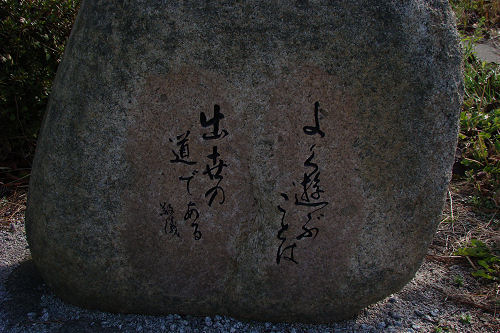 よく遊ぶ
ことは
出世の
道である